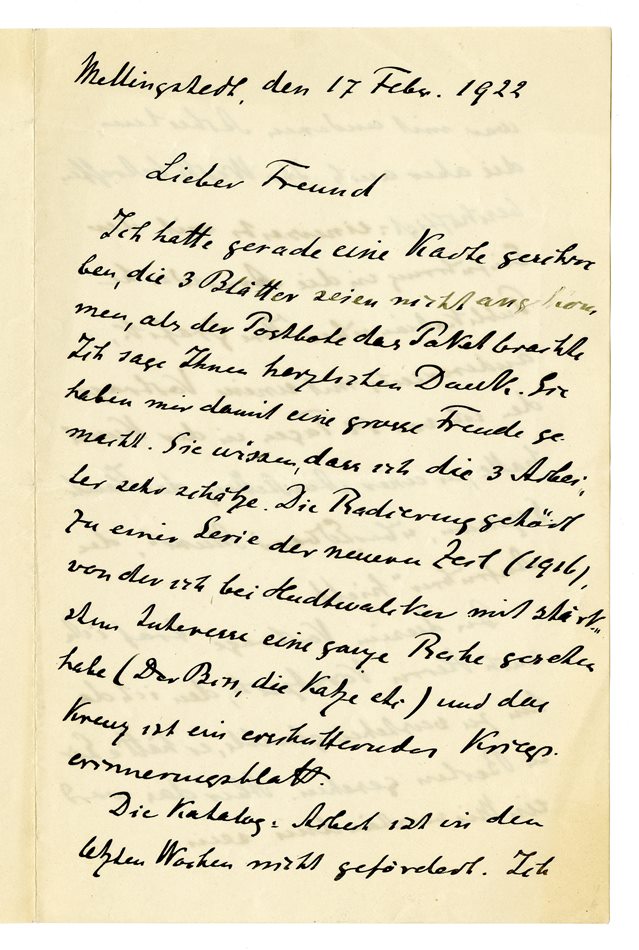 Mellingstedt, den 17 Febr. 1922
Lieber Freund
Ich hatte gerade eine Karte geschrie
ben, die 3 Blätter seien nicht angekom
men, als der Postbote das Paket brachte
Ich sage Ihnen herzlichen Dank. Sie
haben mir damit eine grosse Freude ge
macht. Sie wissen, dass ich die 3 Arbei,
ten sehr schätze. Die Radierung gehört
zu einer Serie der neueren Zeit (1916),
von der ich bei Hudtwalker mit stärk
stem Interesse eine ganze Reihe gesehen
habe (Der Biss, die Katze etc) und das
Kreuz ist ein erschütterndes Kriegs-
erinnerungsblatt.
Die Katalog=Arbeit ist in den
letzten Wochen nicht gefördert. Ich